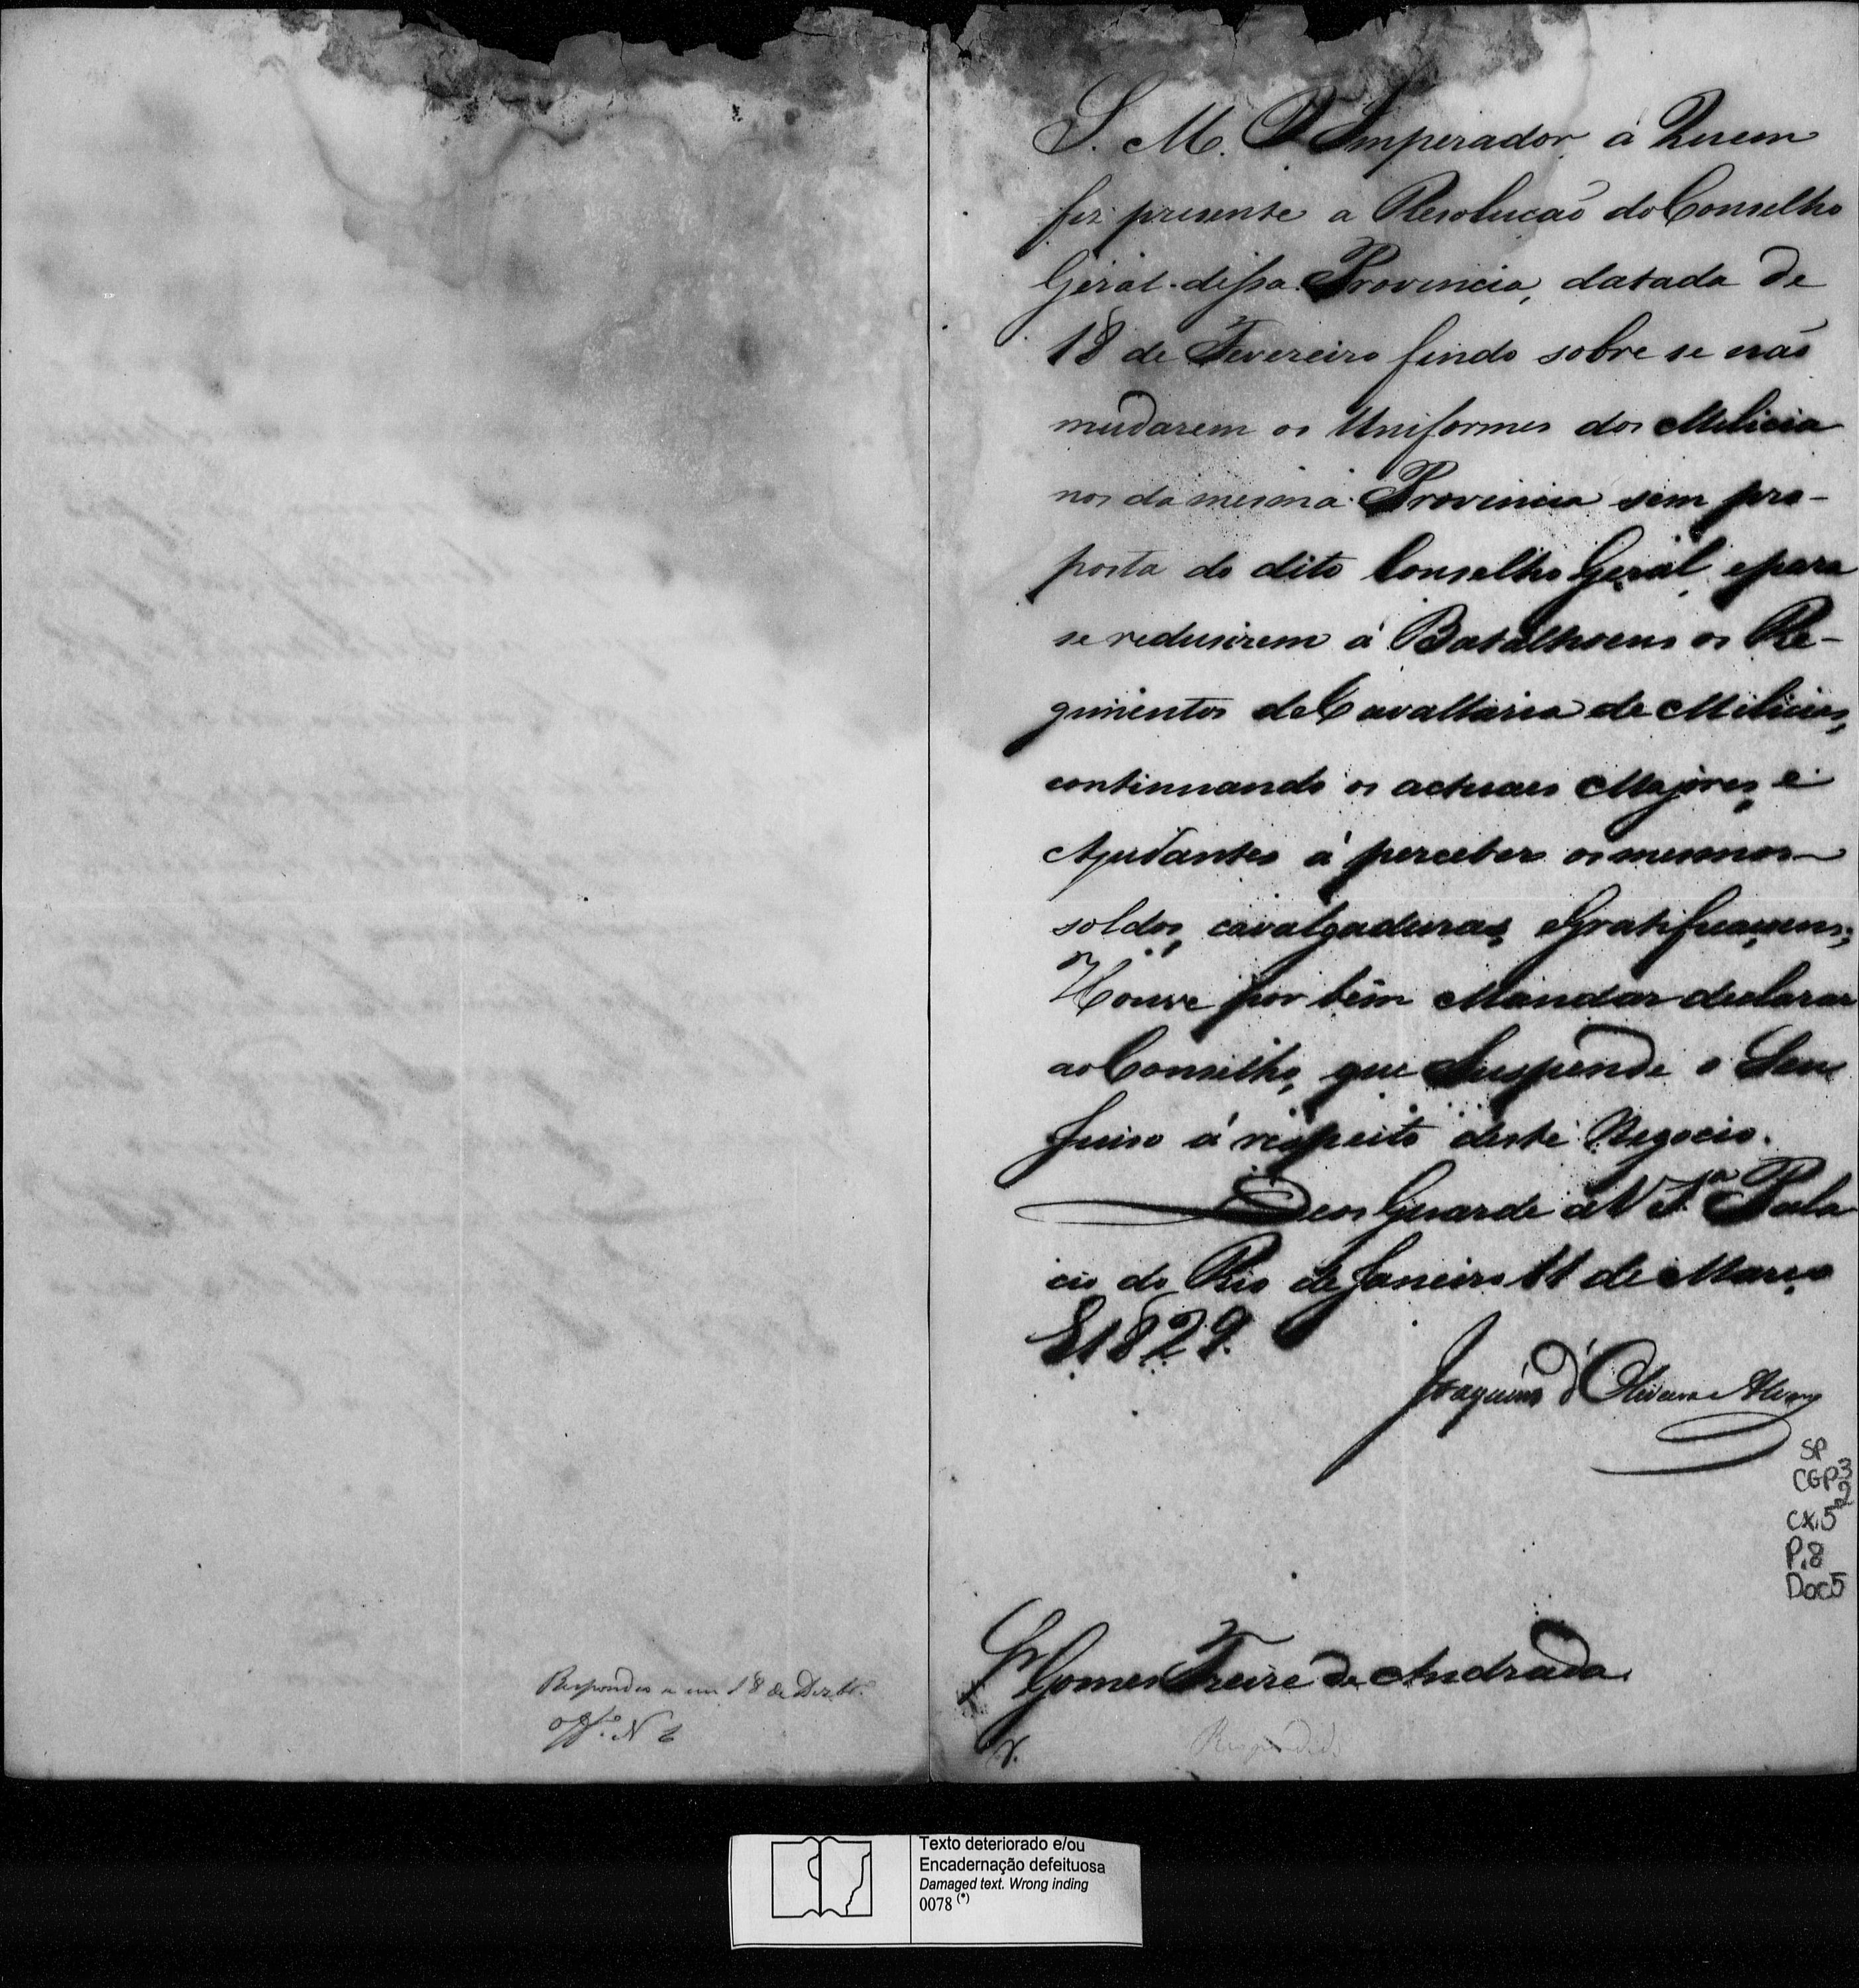 Respondeo se em 18 de Dezbro.
Offo. N 6
S. M. O Imperador á Quem
fiz presente a Resolucaõ do Conselho
Geral dessa Provincia, datada de
18 de Fevereiro findo sobre se naõ
mudarem os Uniformes dos Milicia
nos da mesma Provincia sem pro-
posta do dito Conselho Geral, e para
se redusirem á Batalhoens os Re-
gimentos de Cavallaria de Milicias,
continuando os actuaes Majores, e
Ajudantes á perceber os mesmos
soldos, cavalgaduras, e Gratificaçoens;
Houve por bem Mandar declarar
ao Conselho, que Suspende o Seu
Juiso á respeito deste Negocio.
Deos Guarde a V. Sa. Pala
cio do Rio de Janeiro 11 de Março
de 1829.
Joaquim d'Oliveira Alvares
SP
CGP3
2
CX.5
P.8
Doc5
Sr. Gomes Freire de Andrada.
R.
Respondido
Texto deteriorado e/ou
Encadernação defeituosa
Damaged text. Wrong inding
0078 (*)